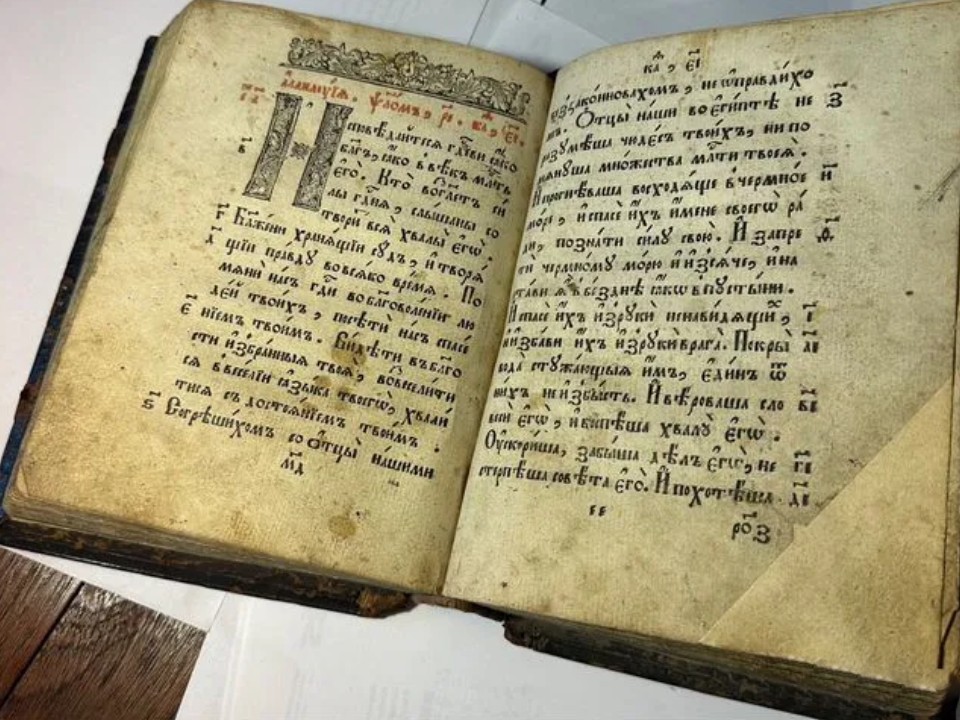 а҆ллилꙋ́їа. ѱало́мъ, р҃є.
И
споведа́итеся гдⷭ҇еви ꙗ҆́ко
бл҃гъ, ꙗ҆́ко в вѣ́къ млⷭ҇ть
є҆го̀. Кто̀ возгл҃етъ си́
лы гдⷭ҇ня, слы́шаны со
твори́тъ вся̀ хвалы̀ є҆гѡ̀.
г҃ Бл҃же́ни храня́щїи сꙋ́дъ, и҆ творя́
д҃ щїи пра́вдꙋ во вся́ко вре́мя. По
мянѝ на́съ гдⷭ҇и во бл҃говоле́нїи лю
де́й твои́хъ, посѣтѝ на́съ спасе́
є҃ нїемъ твои́мъ. Ви́дѣти въ бл҃го
сти и҆збра́нныя твоя̀, возвесели́ти
ся в весе́лїи ꙗ҆зы́ка твоегѡ̀, хвали́
тися съ достоя́нїемъ твои́мъ.
ѕ҃ Согрѣши́хомъ со ѻ҆тцы̀ на́шими
м҃д
ка҃, єı҃
беззако́нновахомъ, не ѡ҆правди́хо
мъ. Ѻ҆тцы̀ на́ши во є҆гѵ́птѣ не з҃
разꙋмѣ́ша чꙋде́съ твои́хъ, ни по
мянꙋ́ша мно́жества млⷭ҇ти твоея̀.
И҆ прогнѣ́ваша восходя́ще в чермно́е и҃
мо́ре, и҆ спасѐ и҆́хъ и҆́мене своегѡ̀ ра́
ди, позна́ти си́лꙋ свою̀. И҆ запре ѳ҃
тѝ чермно́мꙋ мо́рю и҆ и҆зся́че, и҆ на
ста́ви я҆̀ в бе́зднѣ ꙗ҆́кѡ в пꙋсты́ни.
И҆ спасѐ и҆́хъ и҆зрꙋкѝ ненави́дящи, і҃
и҆ и҆зба́ви и҆́хъ и҆зрꙋкѝ врага̀. Покры̀ аı҃
вода̀ стꙋжа́ющыя и҆́мъ, є҆ди́нъ ѿ
ни́хъ не и҆збы́сть. И҆ вѣ́роваша сло вı҃
весѝ є҆гѡ̀, и҆ воспѣ́ша хвалꙋ̀ є҆гѡ̀.
Оу҆скори́ша, забы́ша дѣ́лъ є҆гѡ̀, не гı҃
стерпѣ́ша совѣ́та є҆гѡ̀. И҆ похотѣ́ша дı҃
ро҃з